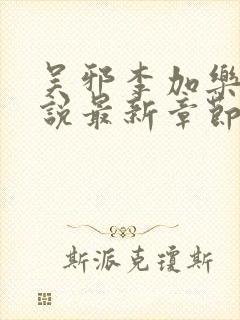 吴邪李加樂
說最新章節
斯派克瓊斯